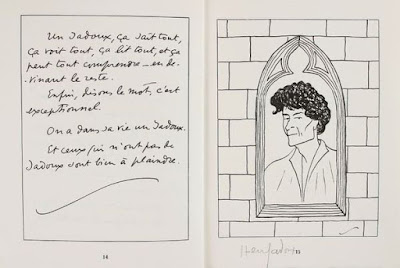 Un Jadoux, ça sait tout,
ça voit tout, ça lit tout, et ça
peut tout comprendre – en de-
-vinant le reste.
Enfin, disons le mot, c'est
exceptionnel.
On a dans sa vie un Jadoux.
Et ceux qui n'ont pas de
Jadoux sont bien à plaindre.
14
Henri Jadoux